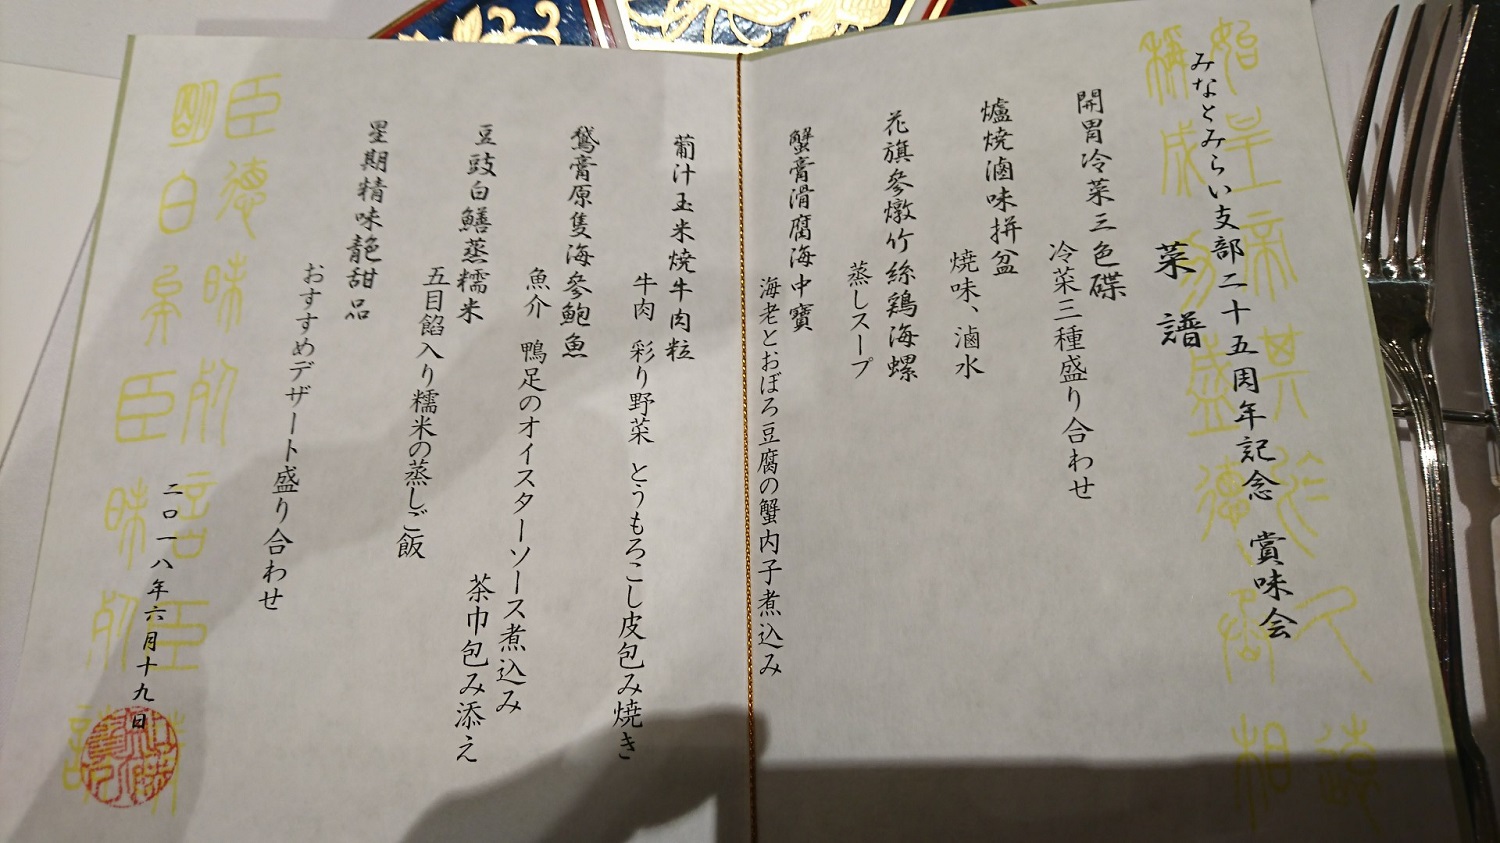 みなとみらい支部二十五周年記念 賞味会
菜譜
開胃冷菜三色碟
冷菜三種盛り合わせ
爐燒滷味拼盆
焼味、滷水
花旗參燉竹絲鶏海螺
蒸しスープ
蟹膏滑腐海中寶
海老とおぼろ豆腐の蟹内子煮込み
葡汁玉米燒牛肉粒
牛肉 彩り野菜 とうもろこし皮包み焼き
鵞膏原隻海參鮑魚
魚介 鴨足のオイスターソース煮込み
茶巾包み添え
豆豉白鱔蒸糯米
五目餡入り糯米の蒸しご飯
星期精味靚甜品
おすすめデザート盛り合わせ
二〇一八年六月十九日